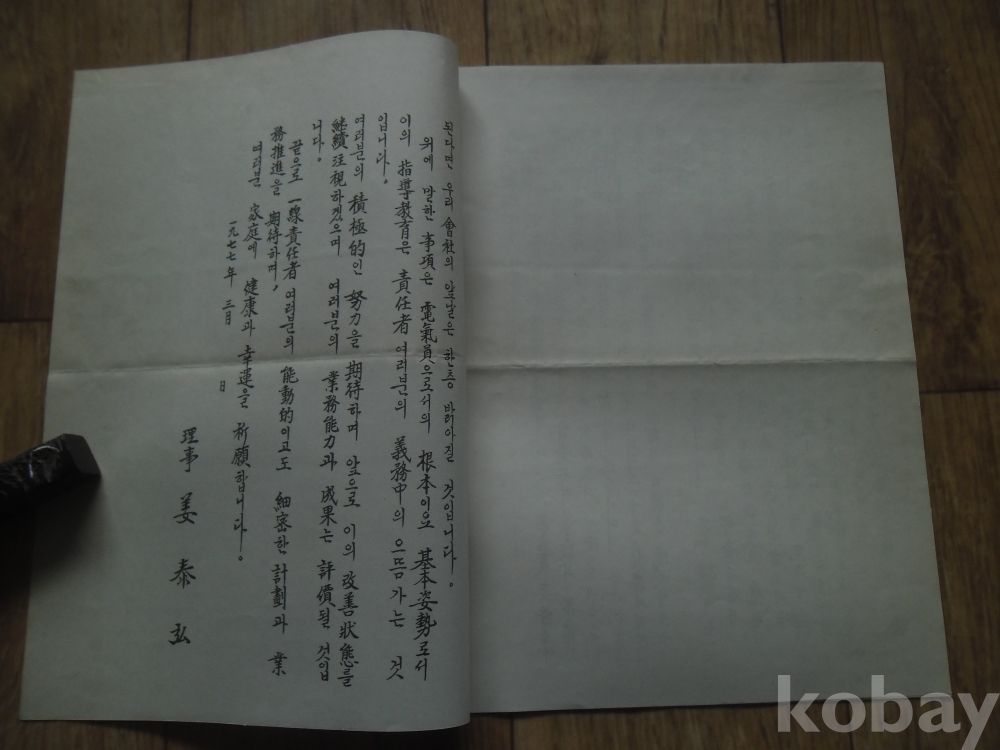 된다면 우리 會社의 앞날은 한층 밝아질 것입니다.
위에 말한 事項은 電氣員으로서의 根本이요 基本姿勢로서
이의 指導敎育은 責任者 여러분의 義務中의 으뜸가는 것
입니다.
여러분의 積極的인 努力을 期待하며 앞으로 이의 改善狀態를
継續注視하겠으며 여러분의 業務能力과 成果는 評價될 것입
니다.
끝으로 一線責任者 여러분의 能動的이고도 細密한 計劃과 業
務推進을 期待하며,
여러분 家庭에 健康과 幸運을 祈願합니다.
一九七七年 三月 日
理事 姜 泰 弘
kobay